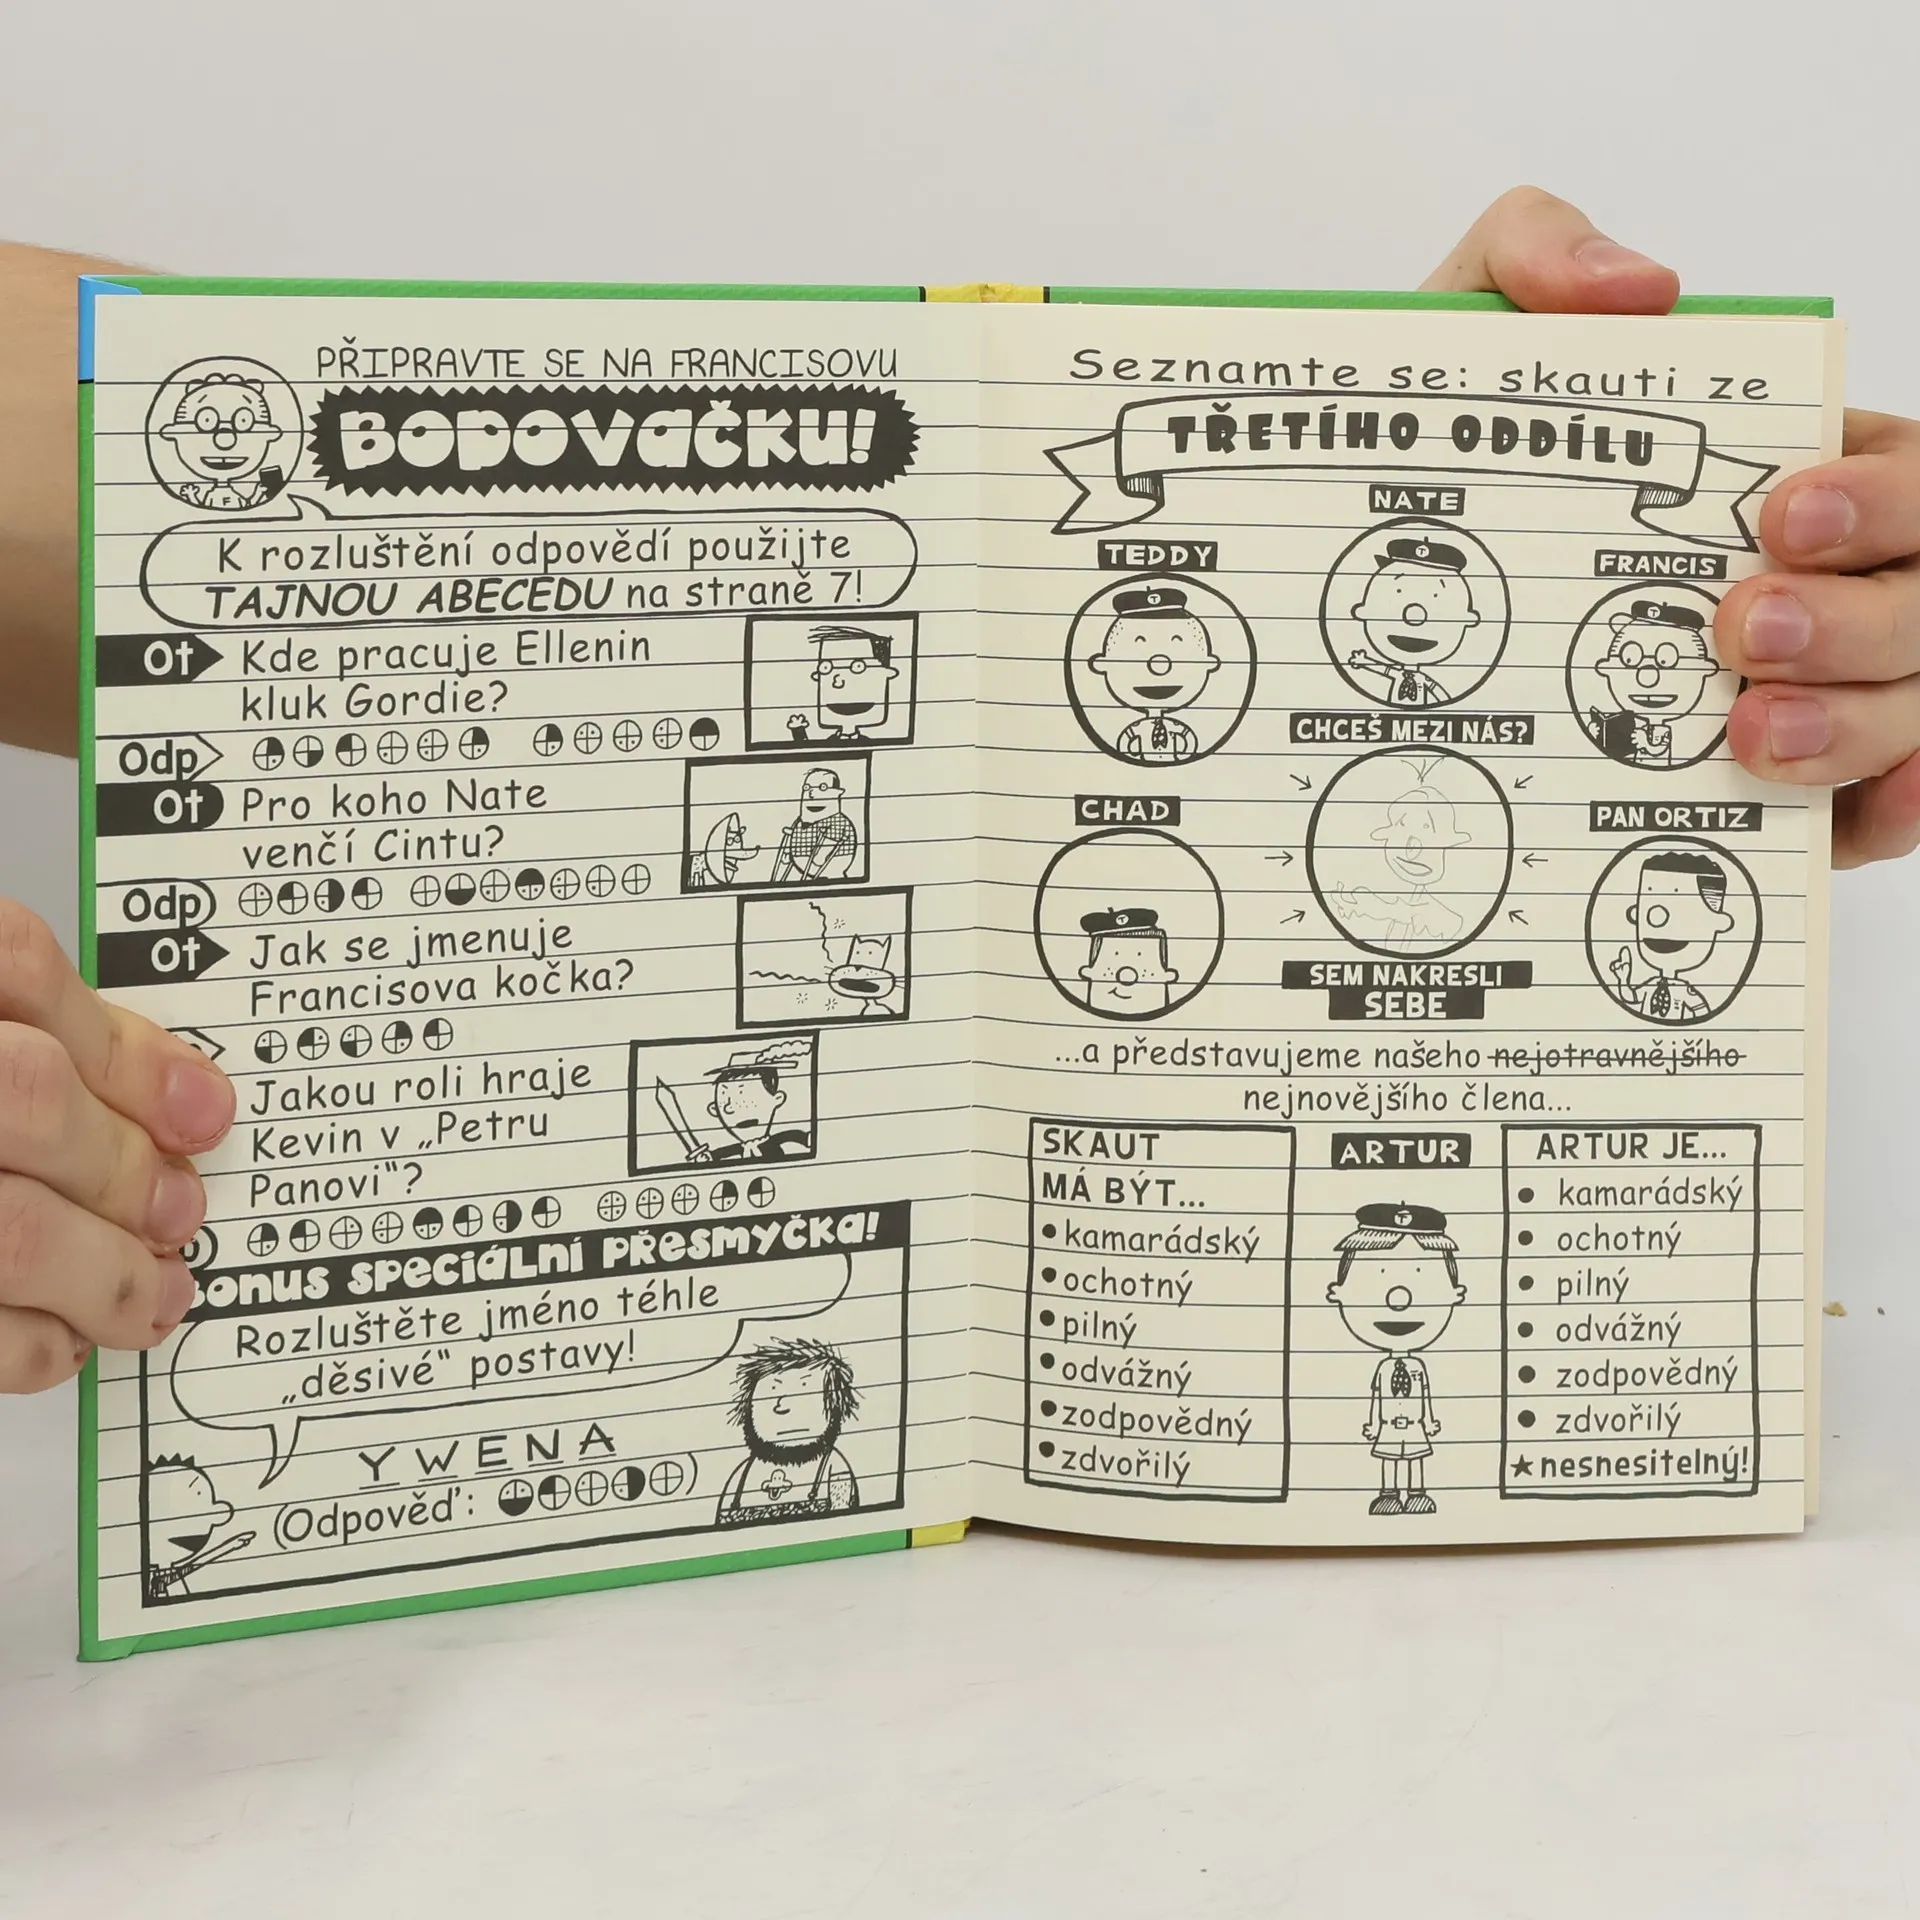 PŘIPRAVTE SE NA FRANCISOVU
BOBOVAČKU!
K rozluštění odpovědí použijte
TAJNOU ABECEDU na straně 7!
Ot Kde pracuje Ellenin
kluk Gordie?
Odp
Ot Pro koho Nate
venčí Cintu?
Odp
Ot Jak se jmenuje
Francisova kočka?
Jakou roli hraje
Kevin v „Petru
Panovi"?
BONUS SPECIÁLNÍ PŘESMYČKA!
Rozluštěte jméno téhle
„děsivé" postavy!
Y W E N A
(Odpověď: )
Seznamte se: skauti ze
TŘETÍHO ODDÍLU
NATE
TEDDY
FRANCIS
CHCEŠ MEZI NÁS?
CHAD
PAN ORTIZ
SEM NAKRESLI
SEBE
...a představujeme našeho nejotravnějšího
nejnovějšího člena...
SKAUT
MÁ BÝT...
• kamarádský
• ochotný
• pilný
• odvážný
• zodpovědný
• zdvořilý
ARTUR
ARTUR JE...
• kamarádský
• ochotný
• pilný
• odvážný
• zodpovědný
• zdvořilý
★ nesnesitelný!